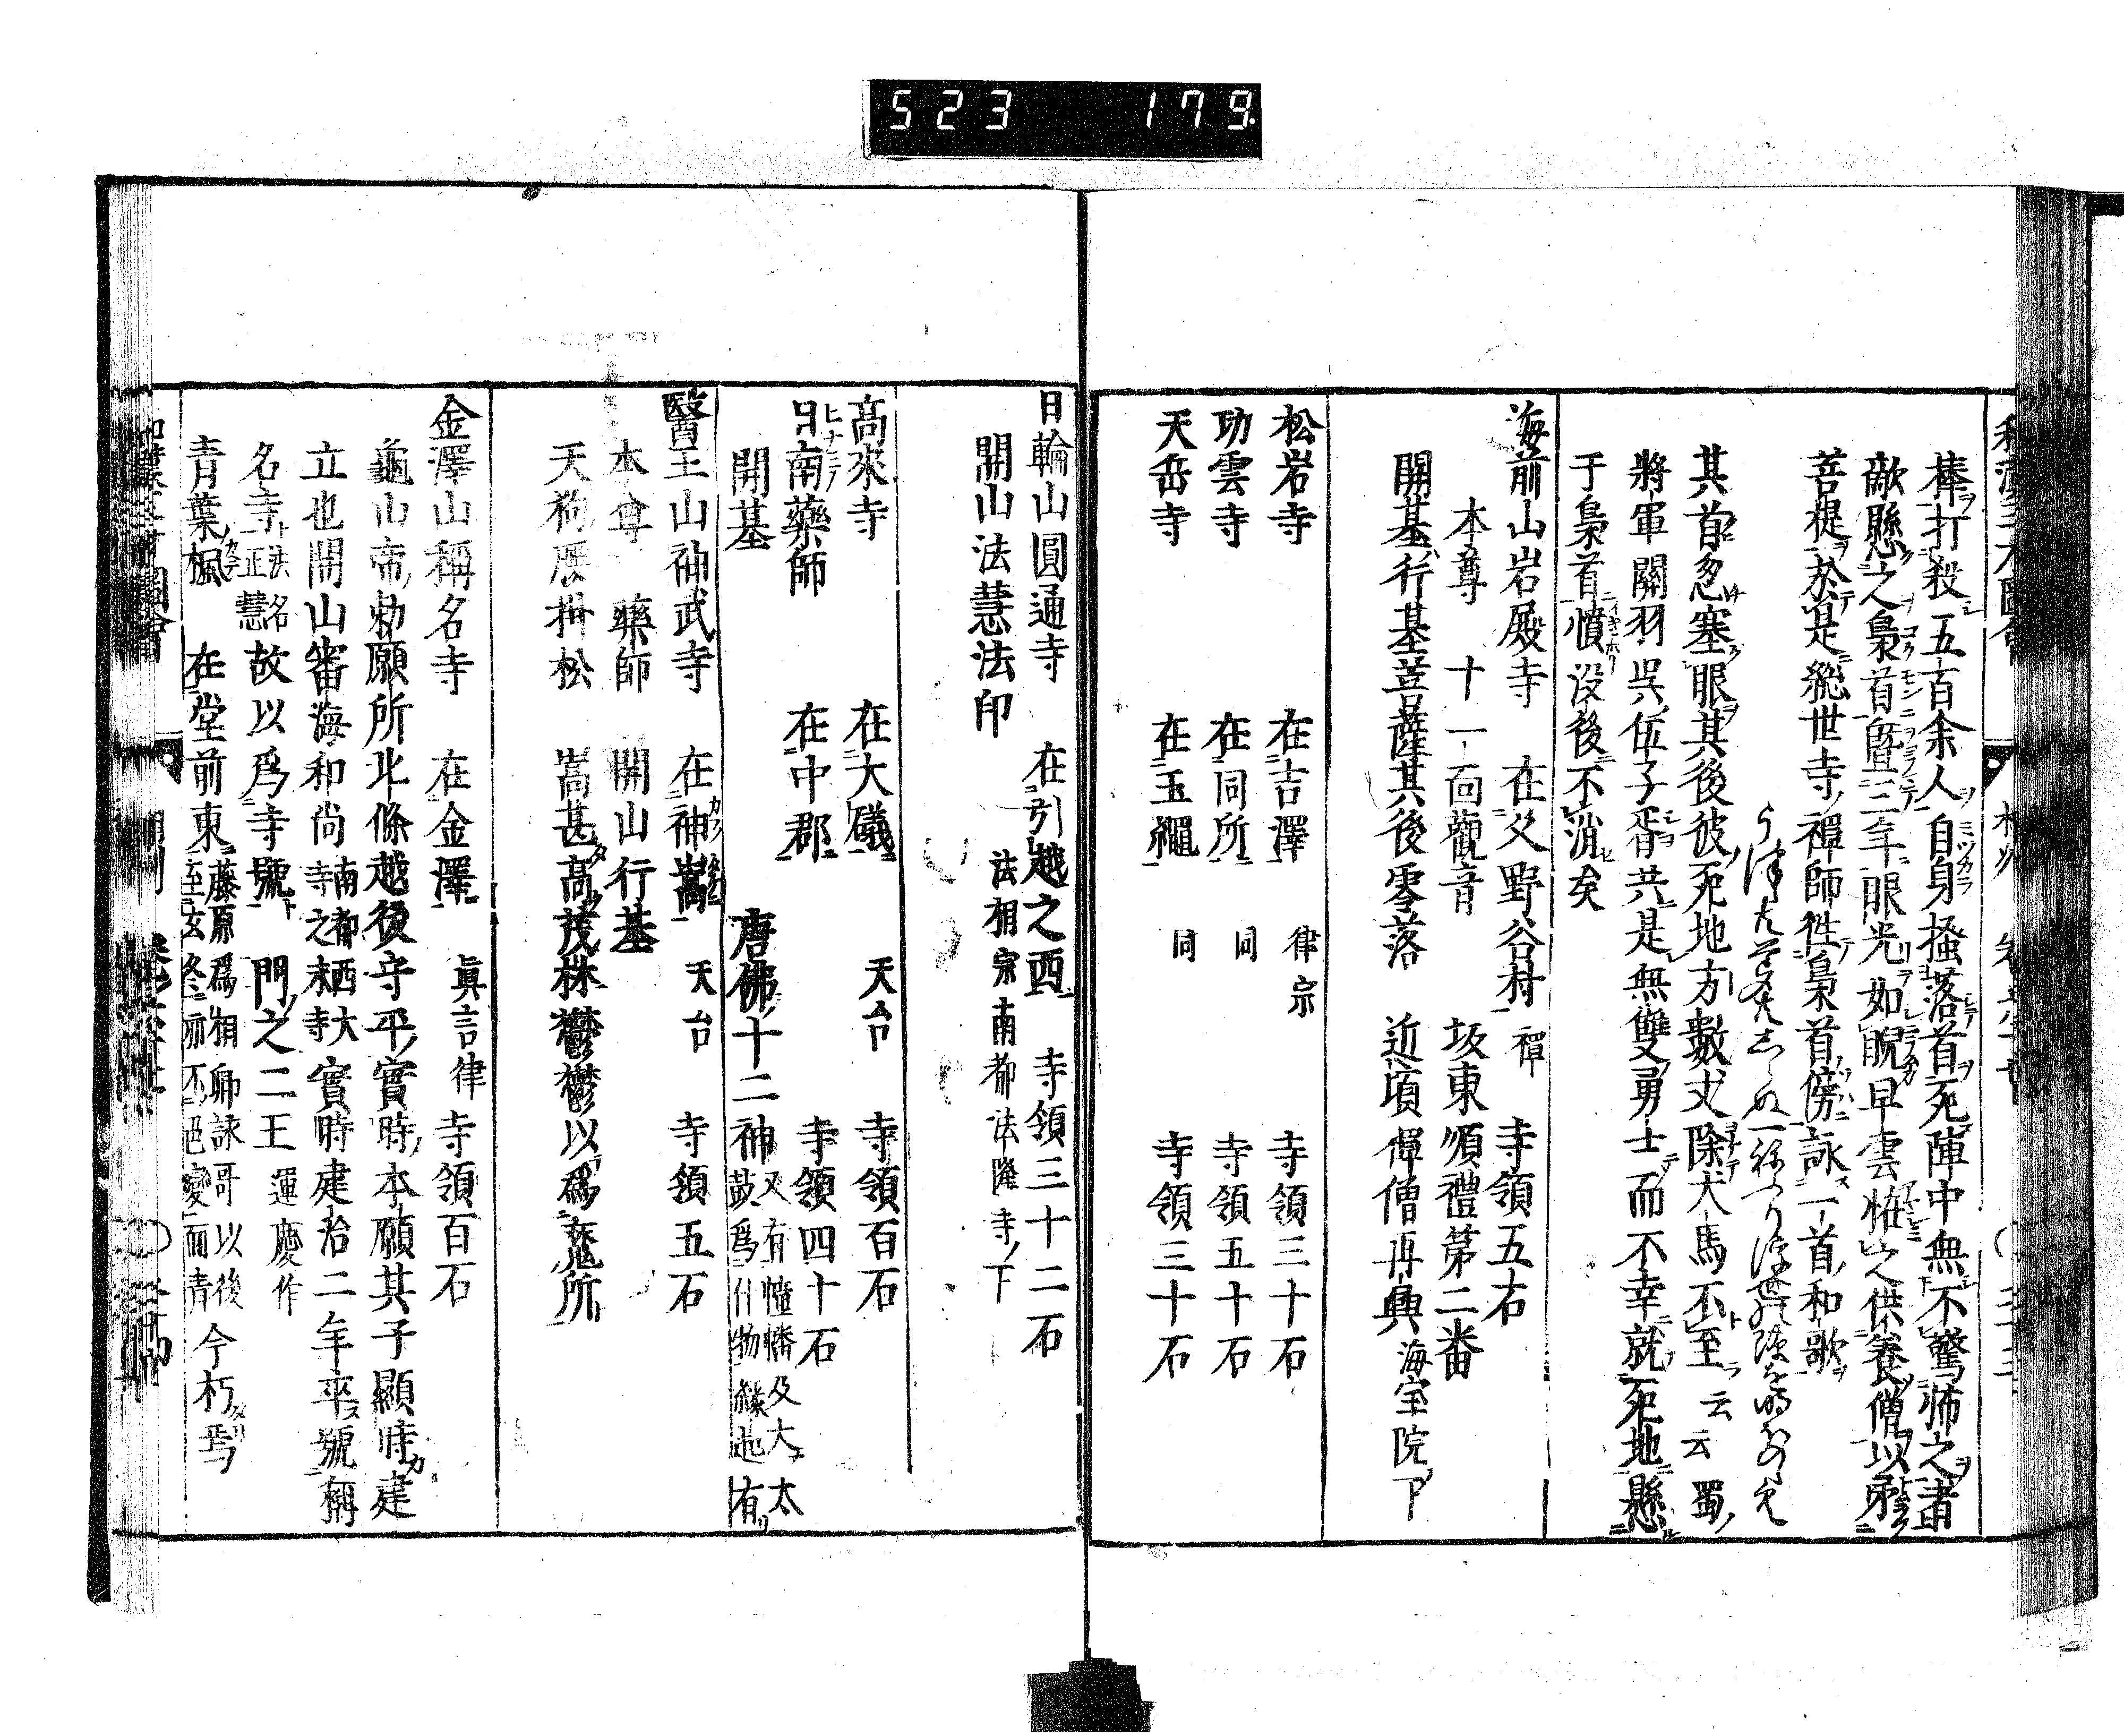 523 179
棒打殺五百余人自身搔落首死陣中無不驚怖之者
敵懸之梟首曁三年眼光如睨早雲恠之供養僧以弔
菩提於是總世寺禪師徃梟首傍詠一首和歌
其首忽塞眼其後彼死地方數丈除犬馬不至云云蜀
將軍關羽呉伍子胥共是無雙勇士而不幸就死地懸
于梟首憤没後不消矣
海前山岩殿寺 在久野谷村 禪 寺領五石
本尊 十一面觀音 坂東順禮第二番
開基行基菩薩其後零落 近頃禪僧再興 海宝院下
松岩寺 在吉澤 律宗 寺領三十石
功雲寺 在同所 同 寺領五十石
天岳寺 在玉繩 同 寺領三十石
日輪山圓通寺 在引越之西 寺領三十二石
開山法慧法印 法相宗南都法隆寺下
高來寺 在大礒 天台 寺領百石
日南藥師 在中郡 寺領四十石
開基 唐佛十二神 又有幢幡及大太
鼓爲什物縁起有
醫王山神武寺 在神嵩 天台 寺領五石
本尊 藥師 開山行基
天狗腰掛松 嵩甚高茂林鬱鬱以爲魔所
金澤山稱名寺 在金澤 眞言律 寺領百石
龜山帝勅願所北條越後守平實時本願其子顯時建
立也開山審海和尚 南都西大
寺之末寺 實時建治二年卒號稱
名寺 法名
正慧 故以爲寺號 門之二王 運慶作
青葉楓 在堂前東 藤原爲相卿詠哥以後
至玄冬亦不絕變而青 今朽焉